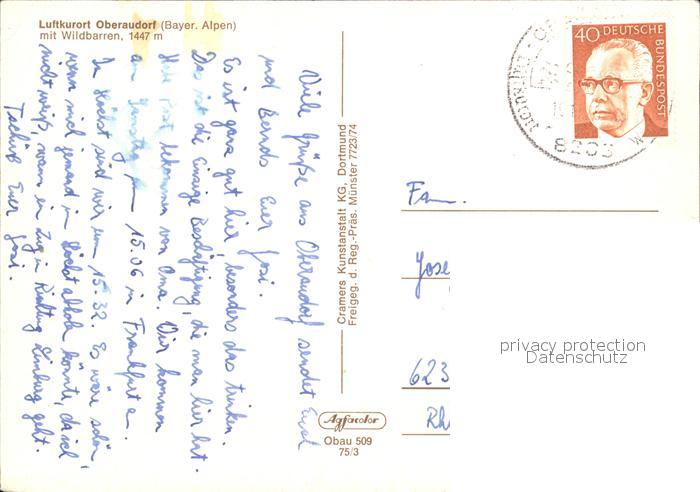 Luftkurort Oberaudorf (Bayer. Alpen)
mit Wildbarren, 1447 m
Viele Grüße aus Oberaudorf sendet Euch
und Bernds Euer Josi.
Es ist ganz gut hier, besonders das trinken.
Das ist die einzige Beschäftigung, die man hier hat.
bekommen von Oma. Wir kommen
am Samstag 15.06 in Frankfurt an.
In Höchst sind wir um 15.32. Es wäre schön,
wenn mich jemand in Höchst abholen könnte, da ich
nicht weiß, wann ein Zug in Richtung Limburg geht.
Tschüß Euer Josi.
Cramers Kunstanstalt KG, Dortmund
Freigeg. d. Reg.-Präs. Münster 7723/74
Agfacolor
Obau 509
75/3
40 DEUTSCHE
BUNDESPOST
8203
Fam.
Jose
623
Rh
privacy protection
Datenschutz